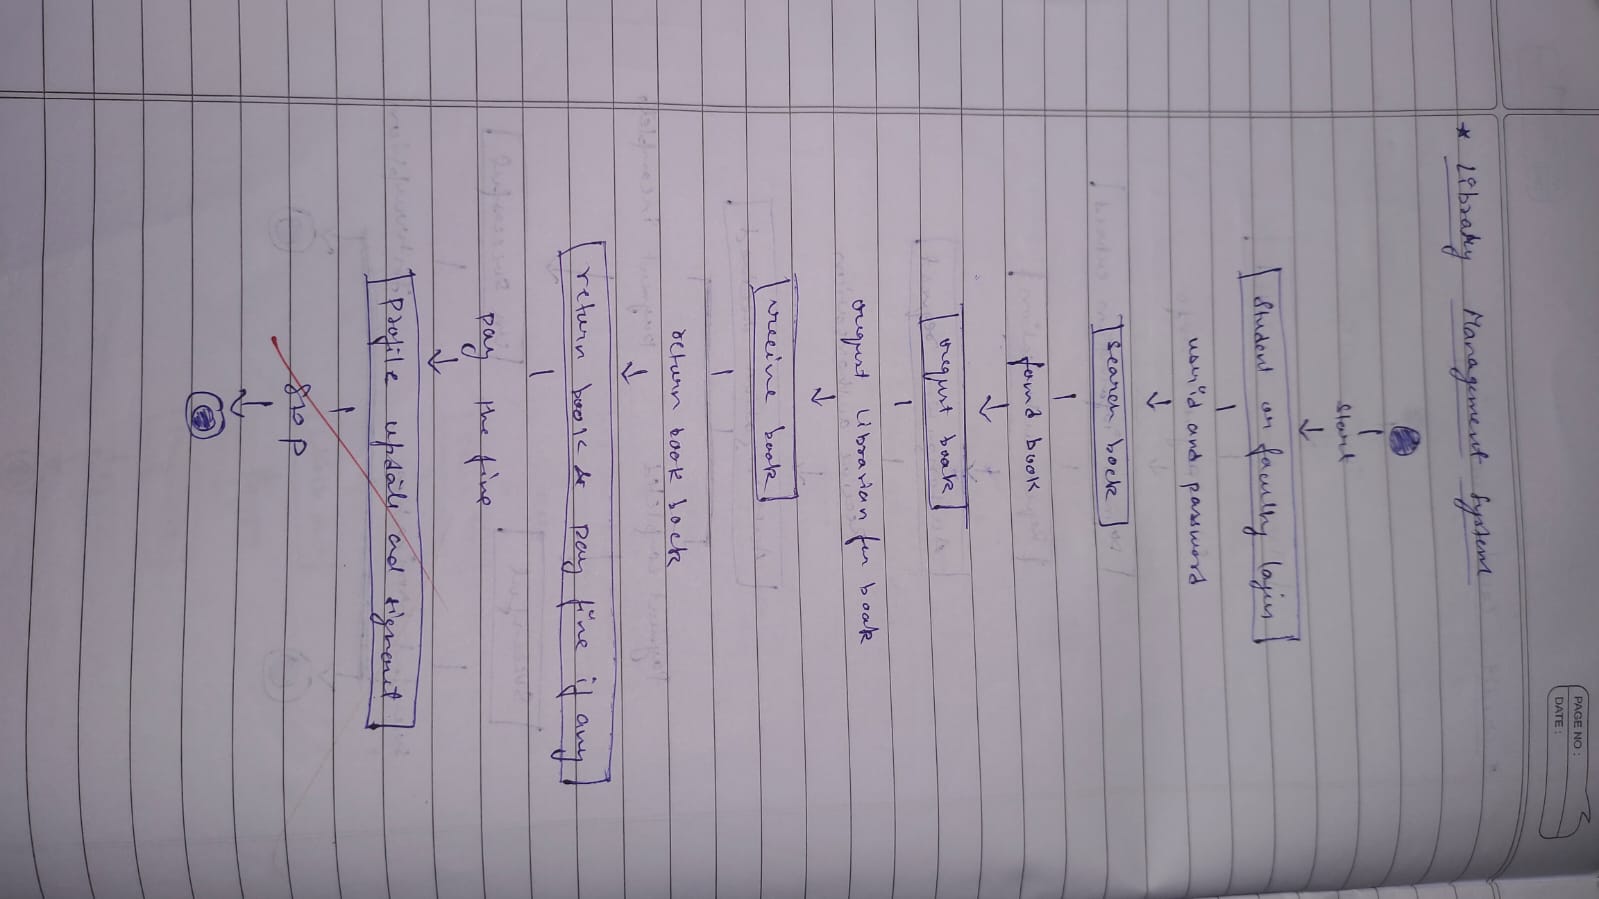 PAGE NO :
DATE :
* Library Management System
Start
Student or faculty login
userid and password
Search book
found book
request book
request librarian for book
recive book
return book back
return book & pay fine if any
pay the fine
Profile update ad signout
Stop